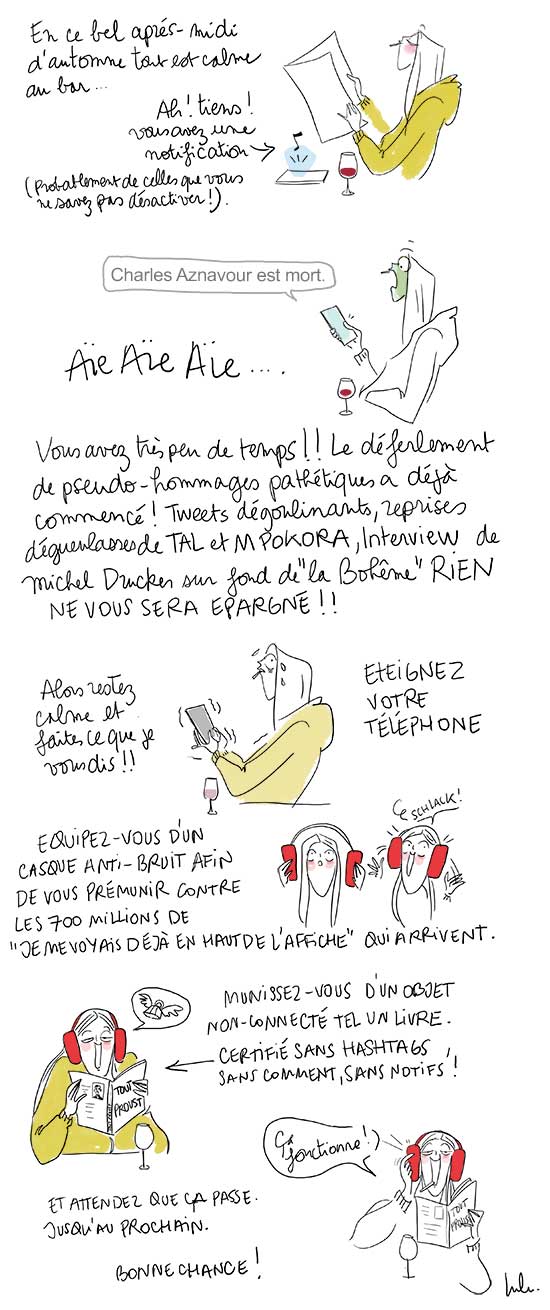 En ce bel après-midi
d'automne tout est calme
au bar...
Ah! tiens!
vous avez une
notification
(probablement de celles que vous
ne savez pas désactiver!).
Charles Aznavour est mort.
Aïe Aïe Aïe....
Vous avez très peu de temps!! Le déferlement
de pseudo-hommages pathétiques a déjà
commencé! Tweets dégoulinants, reprises
dégueulasses de TAL et M POKORA, Interview de
Michel Drucker sur fond de "la Bohême" RIEN
NE VOUS SERA EPARGNÉ!!
Alors restez
calme et
faites ce que je
vous dis!!
ETEIGNEZ
VOTRE
TÉLÉPHONE
SCHLACK!
EQUIPEZ-VOUS D'UN
CASQUE ANTI-BRUIT AFIN
DE VOUS PRÉMUNIR CONTRE
LES 700 MILLIONS DE
"JE ME VOYAIS DÉJÀ EN HAUT DE L'AFFICHE" QUI ARRIVENT.
MUNISSEZ-VOUS D'UN OBJET
NON-CONNECTÉ TEL UN LIVRE.
CERTIFIÉ SANS HASHTAGS
SANS COMMENT, SANS NOTIFS!
TOUT
PROUST
Ça
fonctionne!
TOUT
PROUST
ET ATTENDEZ QUE ÇA PASSE.
JUSQU'AU PROCHAIN.
BONNE CHANCE!